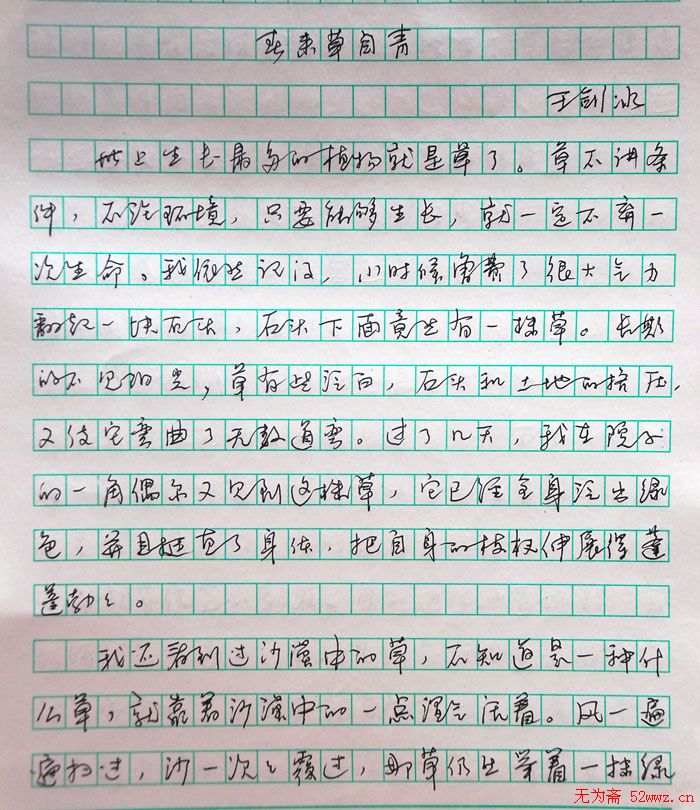 春来草自青
王剑冰
世上生长最多的植物就是草了。草不讲条
件，不论环境，只要能够生长，就一定不弃一
次生命。我依然记得，小时候曾费了很大气力
翻起一块石头，石头下面竟然有一棵草。长期
的不见阳光，草有些泛白，石头和土地的挤压，
又使它弯曲了无数道弯。过了几天，我在院子
的一角偶尔又见到这棵草，它已经全身泛出绿
色，并且挺直了身体，把自身的枝杈伸展得蓬
蓬勃勃。
我还看到过沙漠中的草，不知道是一种什
么草，就靠着沙漠中的一点湿气活着。风一遍
遍扫过，沙一次次覆过，那草仍生举着一抹绿
无为斋 52wwz.cn